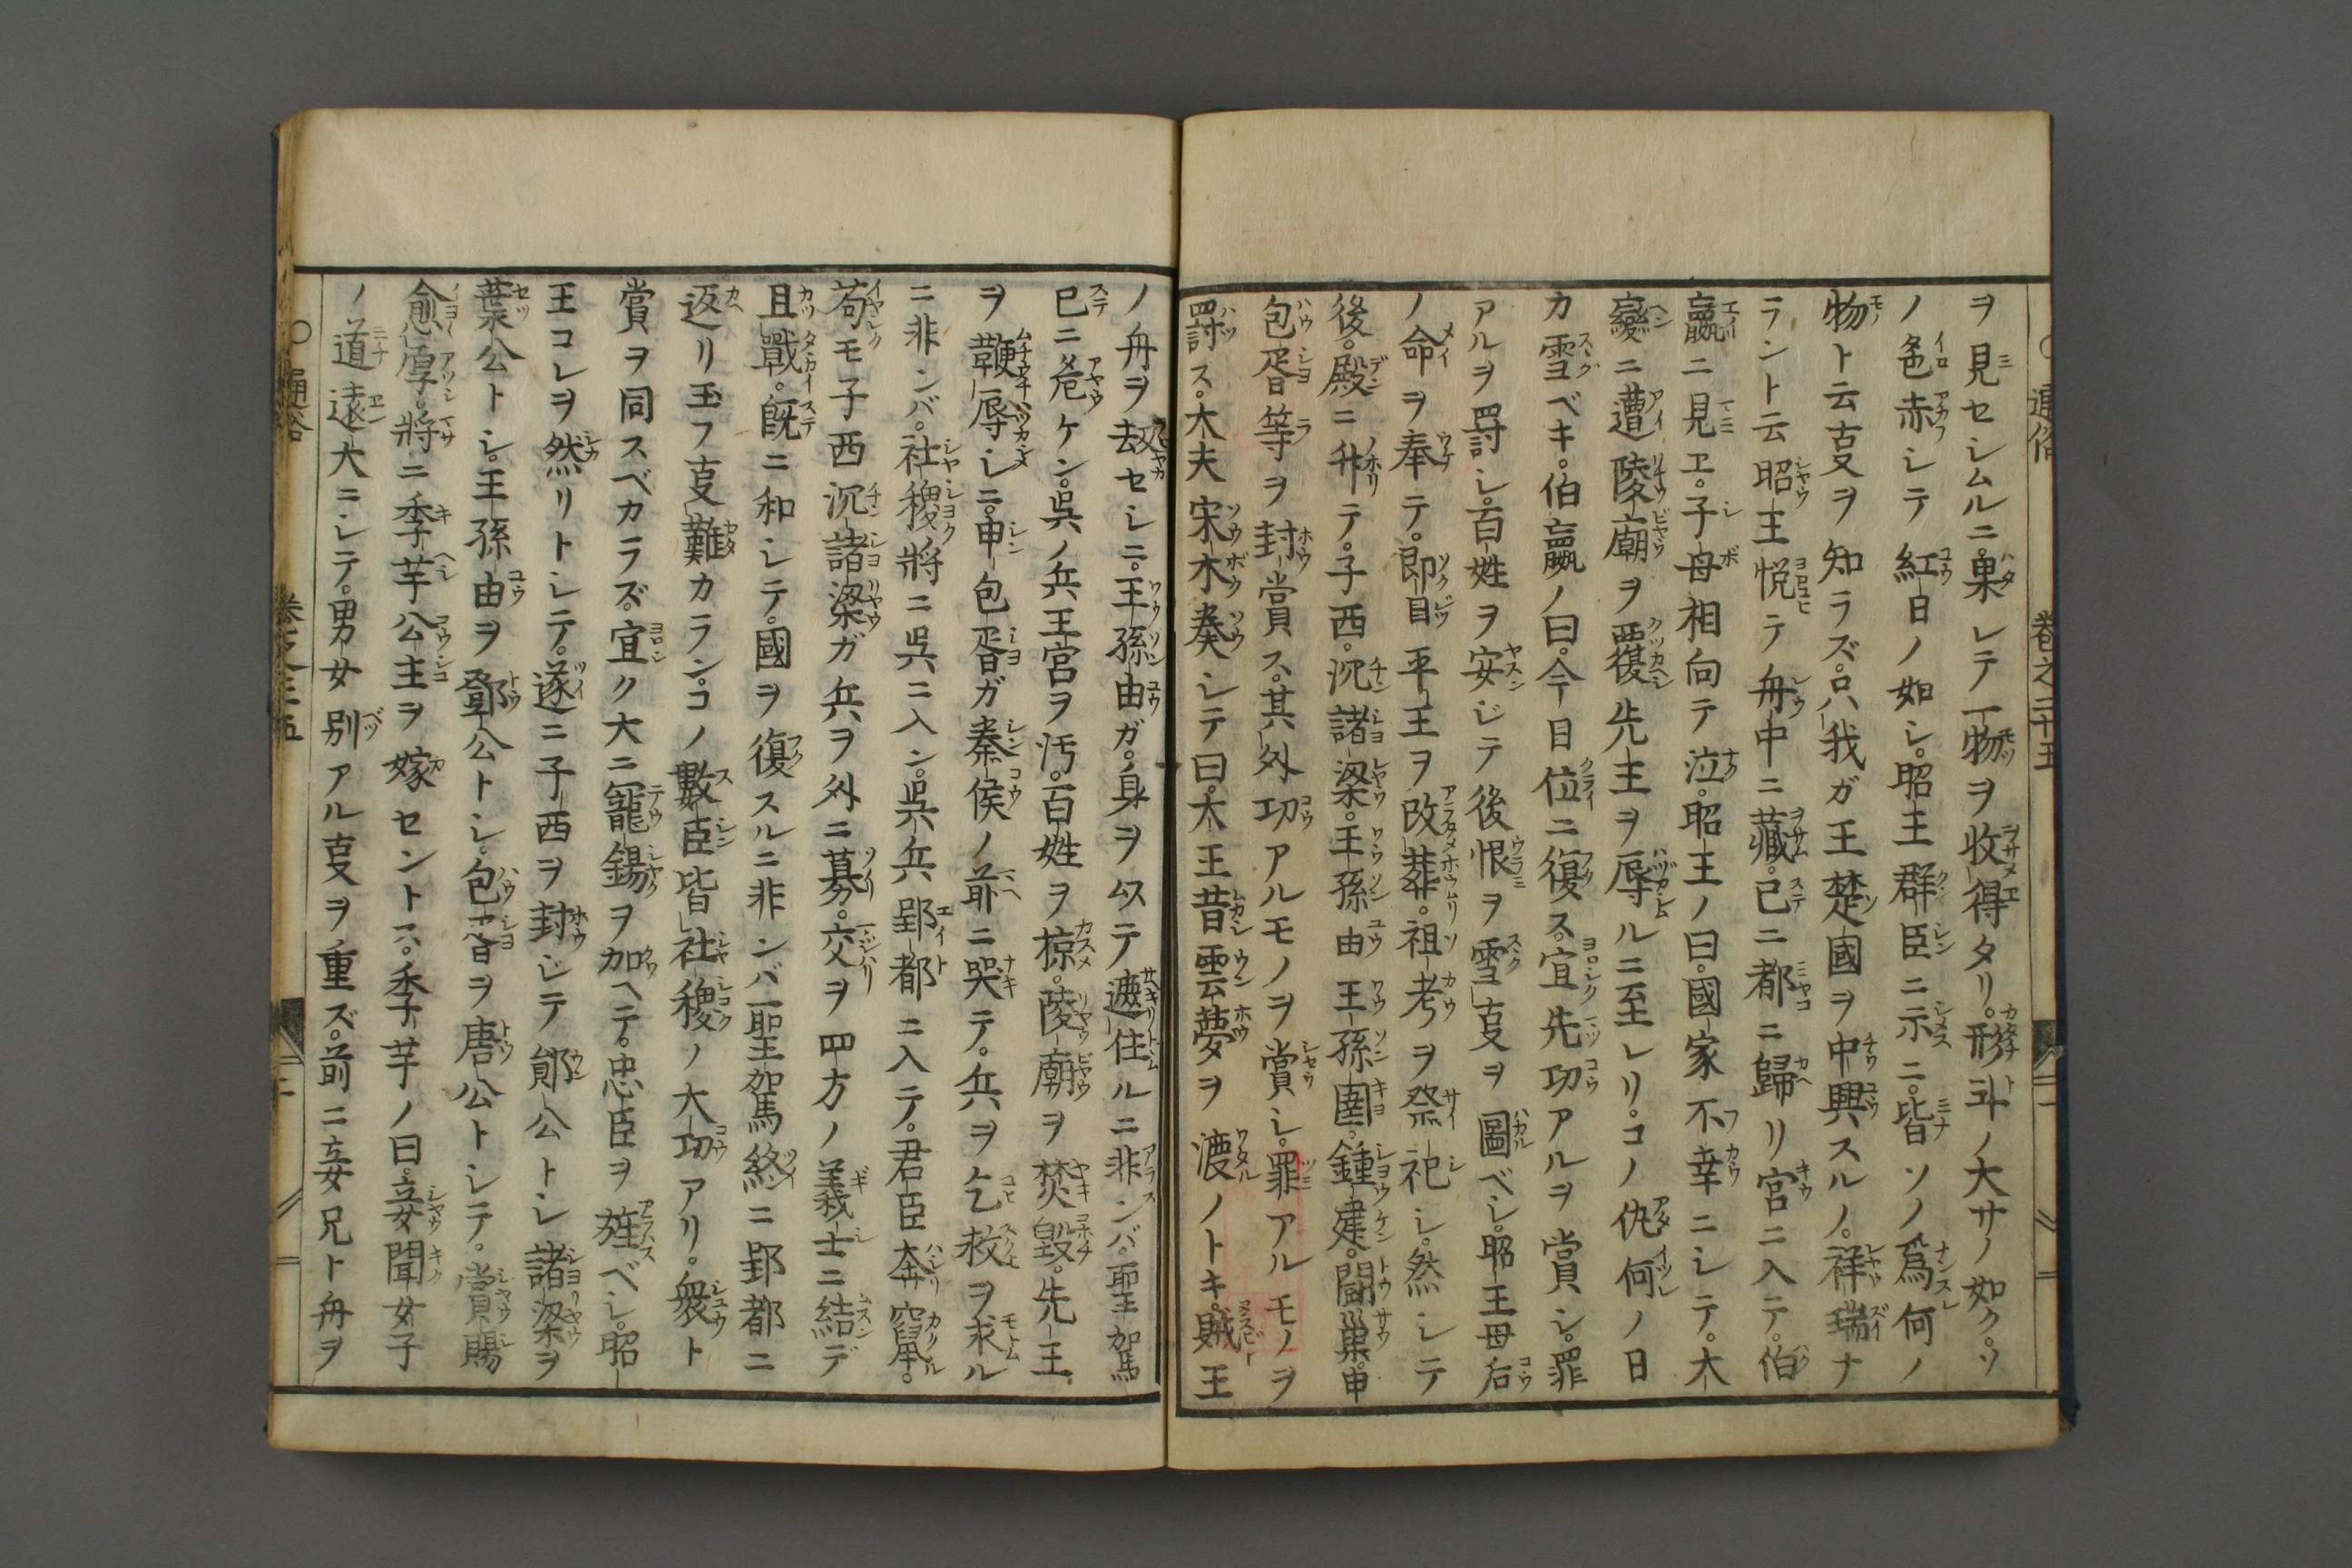 通俗 巻之二十五
ヲ見セシムルニ。果レテ一物ヲ收得タリ。形斗ノ大サノ如ク。ソ
ノ色赤シテ紅日ノ如シ。昭王群臣ニ示ニ。皆ソノ爲何ノ
物ト云叓ヲ知ラズ。只我ガ王楚國ヲ中興スルノ。祥瑞ナ
ラント云昭王悦テ舟中ニ藏。已ニ都ニ歸リ宮ニ入テ。伯
嬴ニ見ヱ。子母相向テ泣。昭王ノ曰。國家不幸ニシテ。大
變ニ遭陵廟ヲ覆先主ヲ辱ルニ至レリ。コノ仇何ノ日
カ雪ベキ。伯嬴ノ曰。今日位ニ復ス。宜先功アルヲ賞シ。罪
アルヲ罸シ。百姓ヲ安ジテ後恨ヲ雪叓ヲ圖ベシ。昭王母后
ノ命ヲ奉テ。即日平王ヲ改葬。祖考ヲ祭祀シ。然シテ
後。殿ニ升テ。子西。沉諸梁。王孫由王孫圉。鍾建。鬪巢。申
包胥等ヲ封賞ス。其外功アルモノヲ賞シ。罪アルモノヲ
罸ス。大夫宋木奏シテ曰。大王昔雲夢ヲ渡ノトキ。賊王
ノ舟ヲ刼セシニ。王孫由ガ。身ヲ以テ遮住ルニ非ンバ。聖駕
已ニ危ケン。呉ノ兵王宮ヲ汚。百姓ヲ掠。陵廟ヲ焚毀。先王
ヲ鞭辱シニ。申包胥ガ秦侯ノ前ニ哭テ。兵ヲ乞救ヲ求ル
ニ非ンバ。社稷將ニ呉ニ入ン。呉兵郢都ニ入テ。君臣奔竄。
苟モ子西沉諸梁ガ兵ヲ外ニ募。交ヲ四方ノ義士ニ結デ
且戰。既ニ和シテ。國ヲ復スルニ非ンバ聖駕終ニ郢都ニ
返リ玉フ叓難カラン。コノ數臣皆社稷ノ大功アリ。衆ト
賞ヲ同スベカラズ。宜ク大ニ寵錫ヲ加ヘテ。忠臣ヲ旌ベシ。昭
王コレヲ然リトシテ。遂ニ子西ヲ封ジテ鄖公トシ諸梁ヲ
葉公トシ。王孫由ヲ鄧公トシ。包胥ヲ唐公トシテ。賞賜
愈厚。將ニ季芊公主ヲ嫁セントス。季芊ノ曰。妾聞女子
ノ道遠大ニシテ。男女別アル叓ヲ重ズ。前ニ妾兄ト舟ヲ
通俗 巻之二十五 二